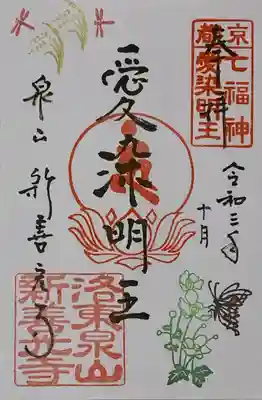 奉拝
京七福神
愛染明王
令和三年
十月
愛染明王
泉山 新善光寺
洛東泉山
新善光寺